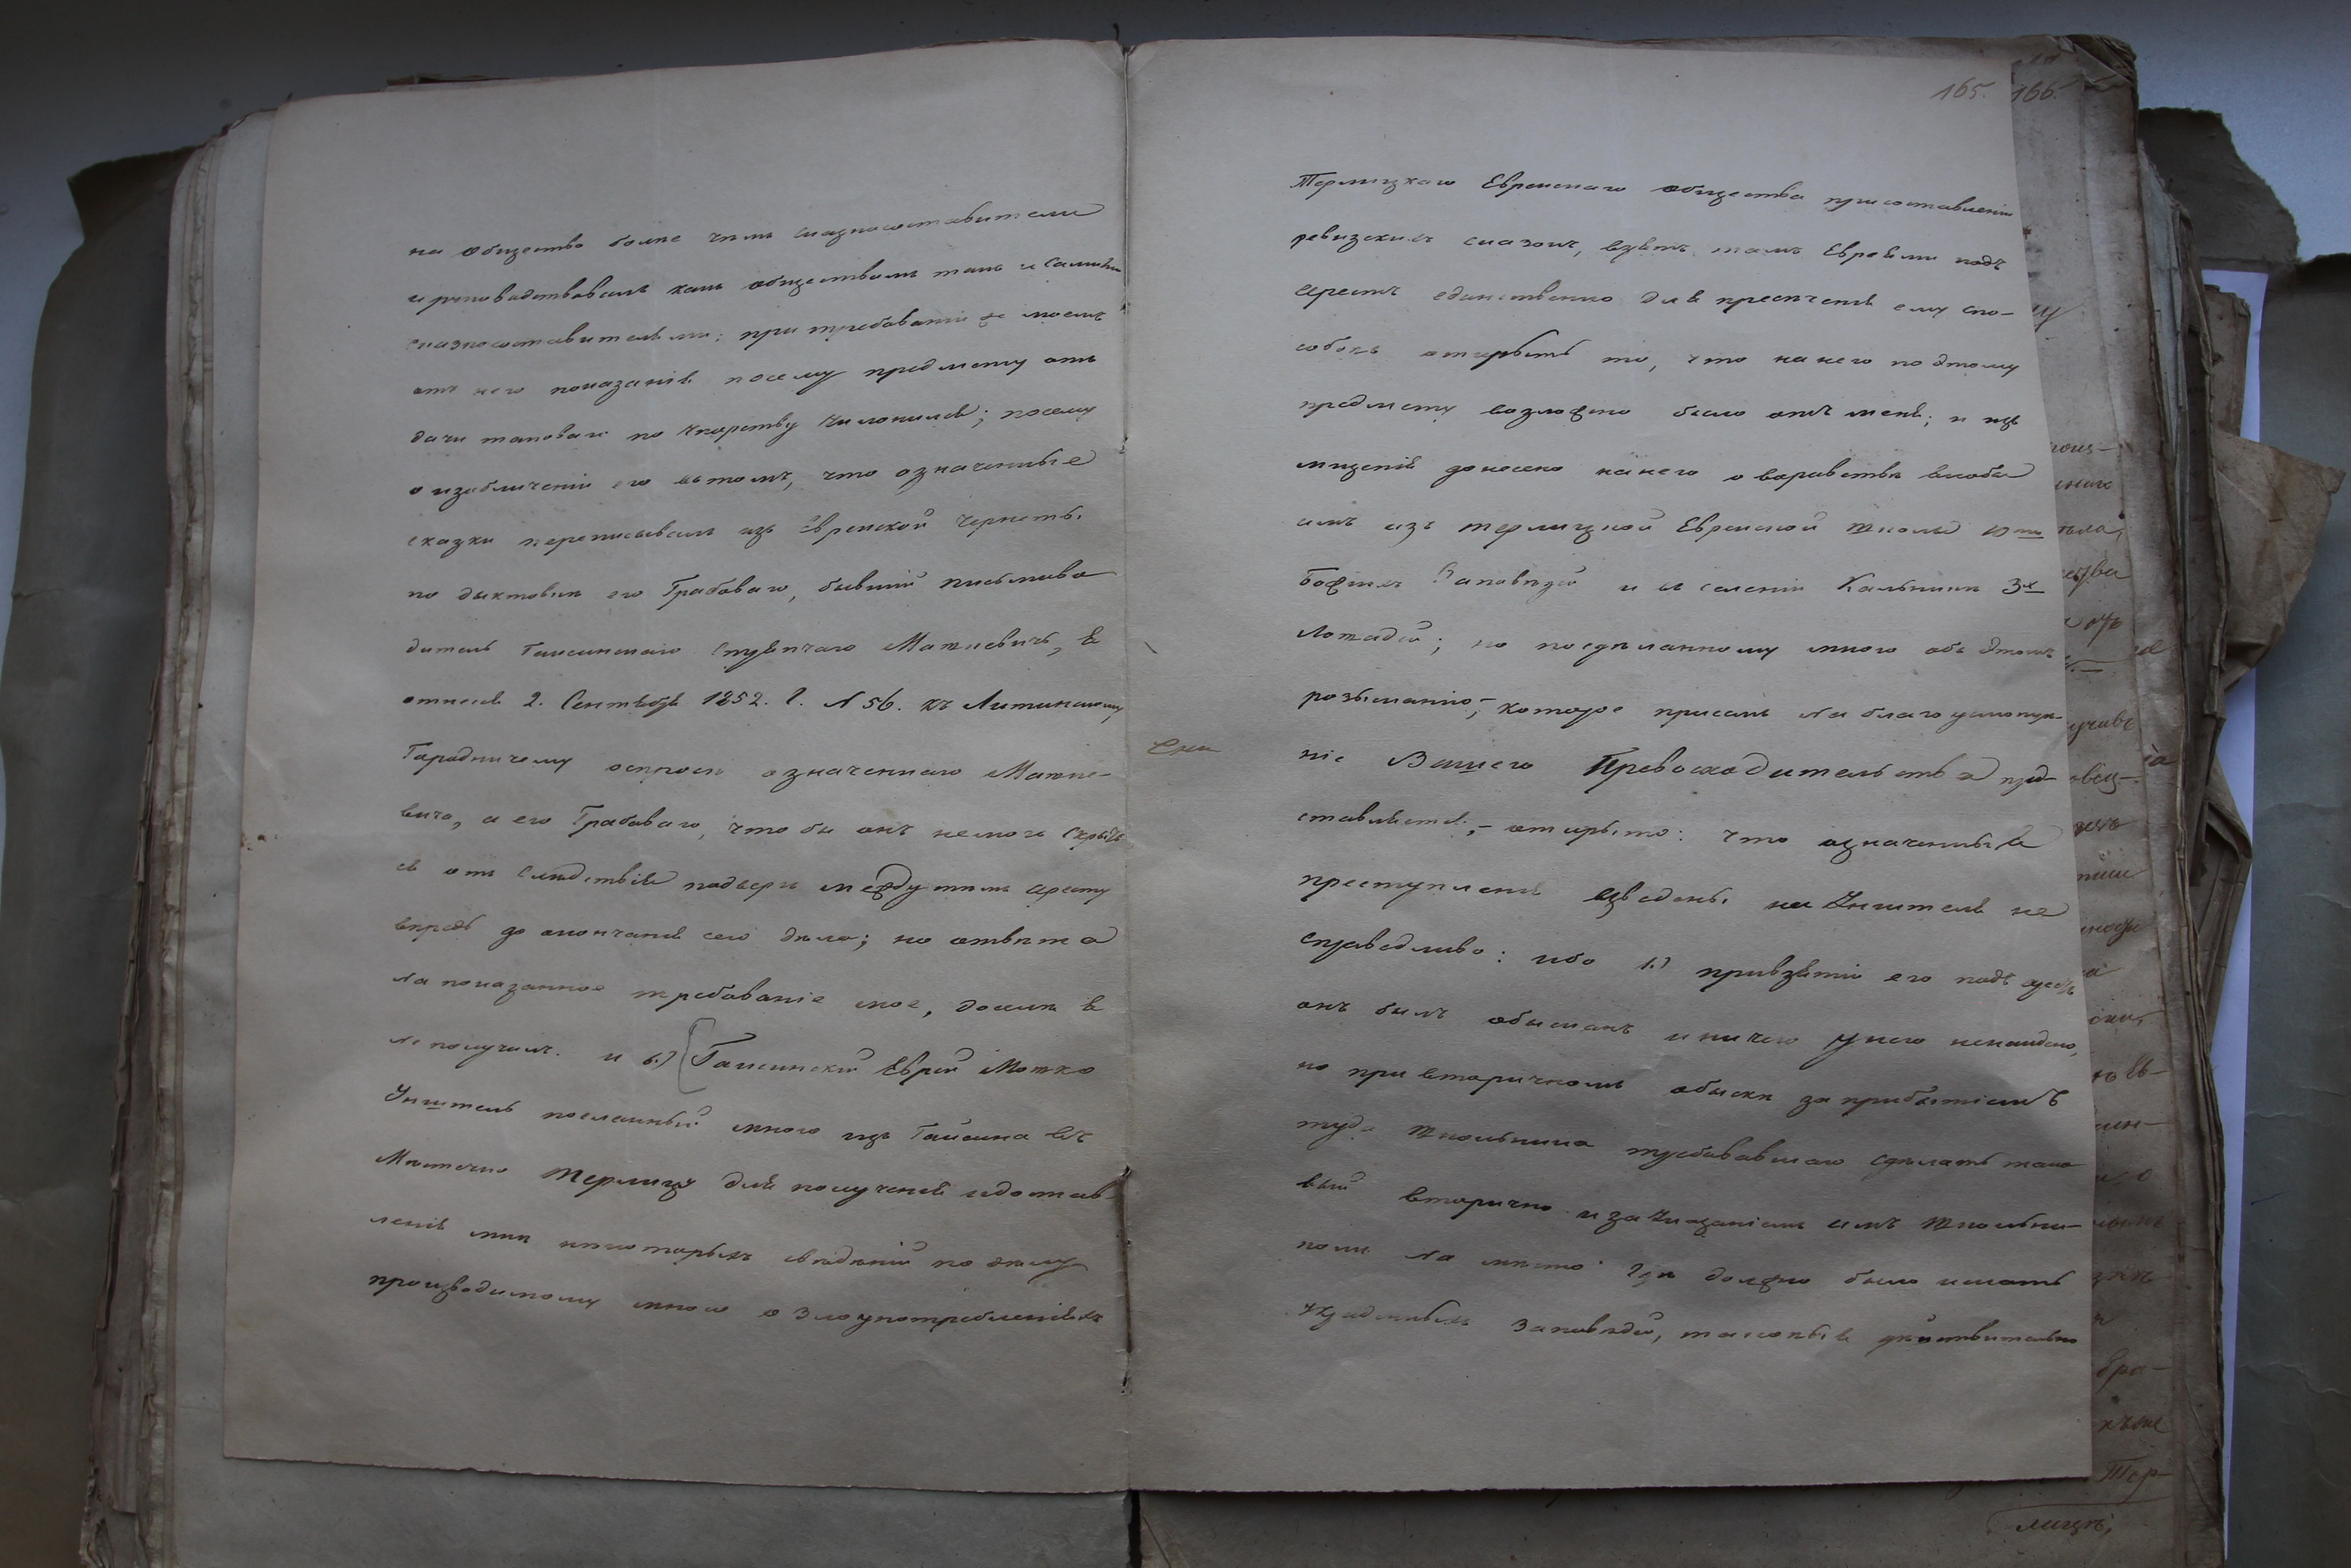 на общество более чемъ сказкосоставители
и руководствовалъ какъ обществомъ такъ и самими
сказкосоставителями; при требованіи же моемъ
отъ него показанія по сему предмету отъ
дачи таковаго по упорству уклонился; посему
о изобличеніи его въ томъ, что означенные
сказки переписывалъ изъ Еврейской чернеты
по диктовкѣ его Грабоваго, бывшій письмово
дитель Гайсинскаго Стряпчаго Маткевичъ, я
отнесся 2. Сентября 1852. г. № 56. къ Литинскому
Городничему о спросѣ означеннаго Матке-
вича, а его Грабоваго, что бы онъ немогъ скрыть
ся отъ слѣдствія подвергъ между тѣмъ аресту
впредь до окончанія сего дѣла; но отвѣта
на показанное требованіе мое, доселѣ я
не получилъ. и 6.) Гайсинскій Еврей Мошко
Учитель посланный мною изъ Гайсина въ
Мѣстечко Терлицу для полученія и достав-
ленія мнѣ нѣкоторыхъ свѣдѣній по дѣлу
производимому мною о злоупотребленіяхъ
165. 166.
Терлицкаго Еврейскаго общества при составленіи
ревизскихъ сказокъ, взятъ тамъ Евреями подъ
арестъ единственно для пресѣченія ему спо-
собовъ открыть то, что на него по этому
предмету возложено было отъ меня; и изъ
мщенія донесено на него о воровствѣ якобы
имъ изъ Терлицкой Еврейской школы 10ти
Божихъ Заповѣдей и въ селеніи Кальникѣ 3х
лошадей; но по сдѣланному мною объ этомъ
розысканію, которое при семъ на благоусмотрѣ-
ніе Вашего Превосходительства пред-
ставляется, открыто: что означенныя
преступленія взведены на Учителя не
справедливо: ибо 1.) при взятіи его подъ арестъ
онъ былъ обысканъ и ничего у него ненайдено,
но при вторичномъ обыскѣ за прибытіемъ
туда школьника требовавшаго сдѣлать тако
вый вторично и за указаніемъ имъ школьни-
комъ на мѣсто гдѣ должно было искать
украденныхъ Заповѣдей, таковыя дѣйствительно